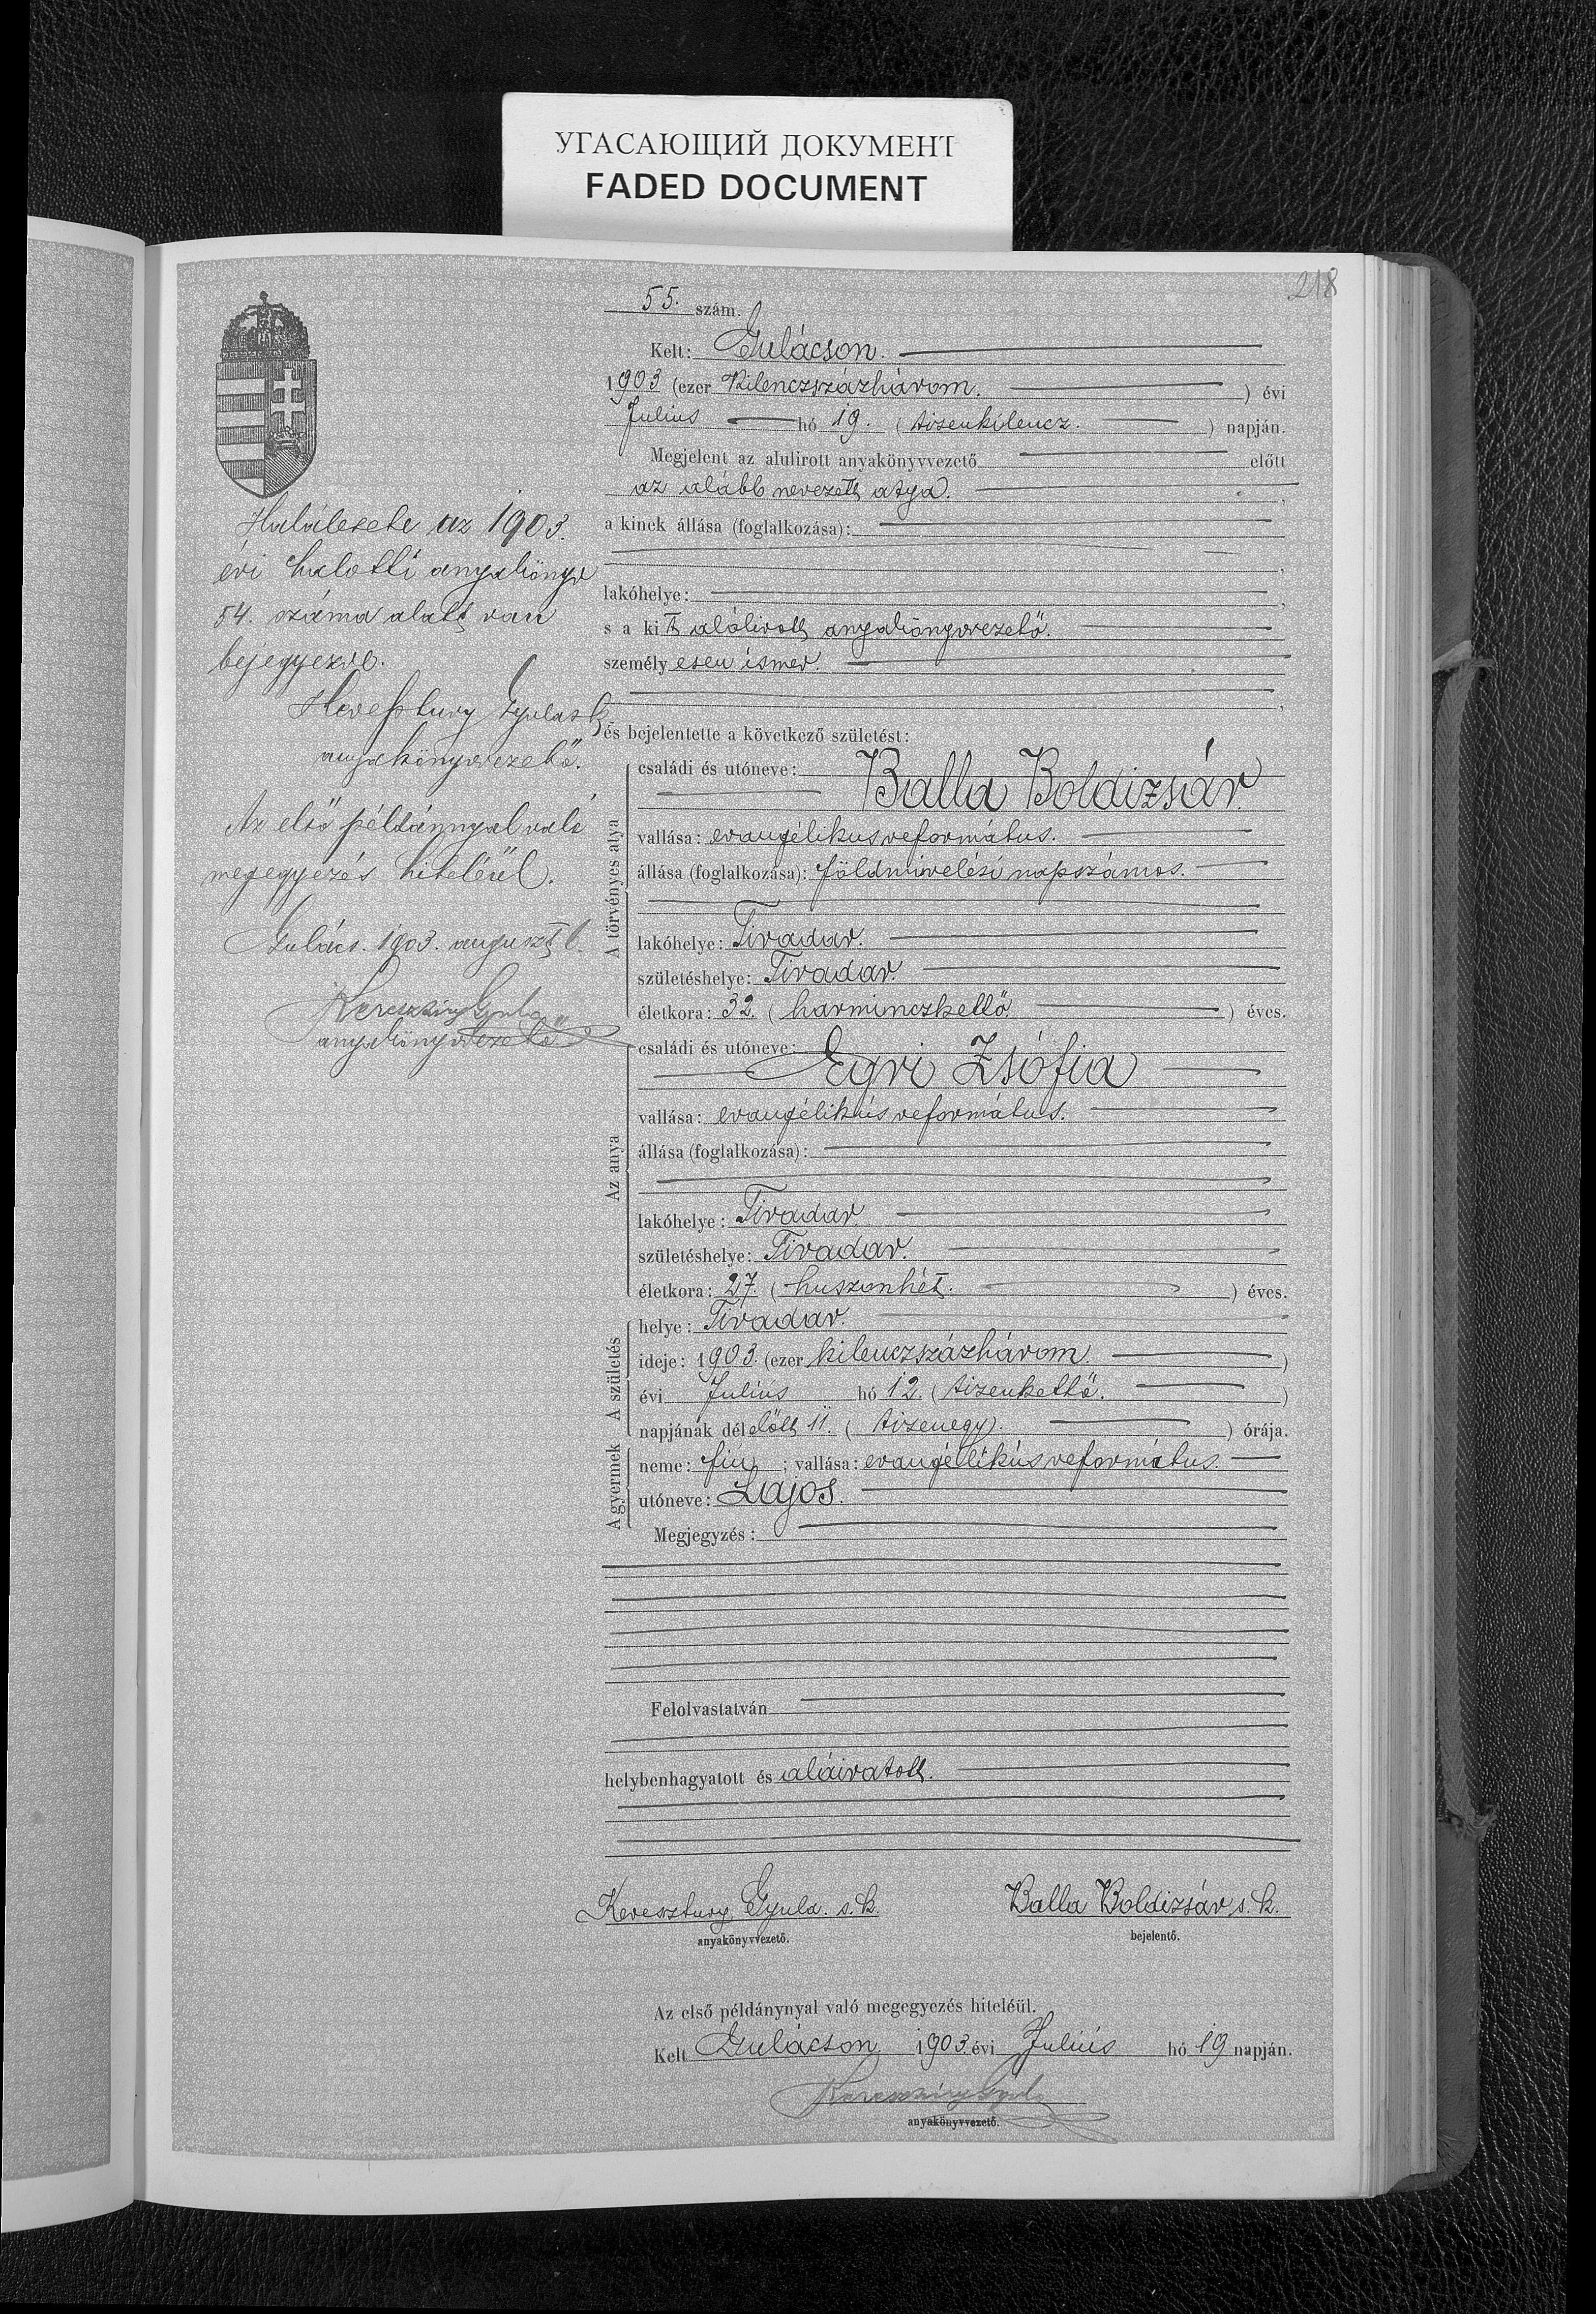 УГАСАЮЩИЙ ДОКУМЕНТ
FADED DOCUMENT
218
55. szám.
Kelt: Gulácson.
1903 (ezer kilenczszázhárom.) évi
Julius hó 19. (tizenkilencz.) napján.
Megjelent az alulirott anyakönyvvezető előtt
az alább nevezett atya.
a kinek állása (foglalkozása):
lakóhelye:
s a kit alólirott anyakönyvvezető.
személyesen ismer.
és bejelentette a következő születést:
A törvényes atya
családi és utóneve:
Balla Boldizsár
vallása: evangélikus református.
állása (foglalkozása): földmivelési napszámos.
lakóhelye: Tivadar.
születéshelye: Tivadar.
életkora: 32. (harminczkettő) éves.
Az anya
családi és utóneve:
Egri Zsófia
vallása: evangélikus református.
állása (foglalkozása):
lakóhelye: Tivadar
születéshelye: Tivadar.
életkora: 27. (huszonhét.) éves.
A születés
helye: Tivadar.
ideje: 1903. (ezer kilenczszázhárom.)
évi Julius hó 12. (tizenkettő.)
napjának délelőtt 11. (tizenegy.) órája.
A gyermek
neme: fiú; vallása: evangélikus református.
utóneve: Lajos.
Megjegyzés:
Felolvastatván
helybenhagyatott és aláiratott.
Keresztury Gyula. s. k.
anyakönyvvezető.
Balla Boldizsár s. k.
bejelentő.
Az első példánynyal való megegyezés hiteléül.
Kelt Gulácson 1903. évi Julius hó 19 napján.
Keresztury Gyula
anyakönyvvezető.
Halálesete az 1903.
évi halotti anyakönyv
54. száma alatt van
bejegyezve.
Keresztury Gyula s. k.
anyakönyvvezető.
Az első példánnyal való
megegyezés hiteléül.
Gulács. 1903. auguszt 6.
Keresztury Gyula
anyakönyvvezető